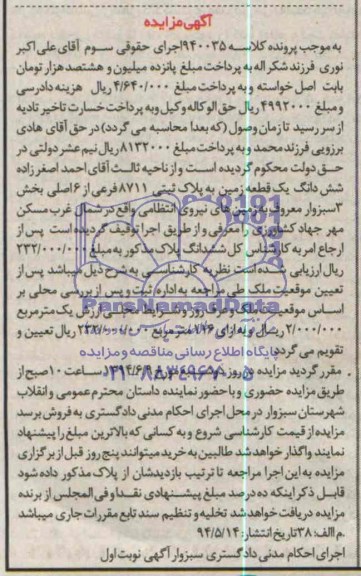 آگهی مزایده
به موجب پرونده کلاسه ۹۴۰۰۳۵اجرای حقوقی سوم آقای علی اکبر
نوری فرزند شکراله به پرداخت مبلغ پانزده میلیون و هشتصد هزار تومان
بابت اصل خواسته و به پرداخت مبلغ ۴/۶۴۰/۰۰۰ ریال هزینه دادرسی
و مبلغ ۴۹۹۲۰۰۰ ریال حق الوکاله وکیل وبه پرداخت خسارت تاخیر تادیه
از سر رسید تا زمان وصول (که بعدا محاسبه می گردد) در حق آقای هادی
برزویی فرزند محمد و به پرداخت مبلغ ۸۱۳۲۰۰۰ ریال نیم عشر دولتی در
حق دولت محکوم گردیده است و از ناحیه ثالث آقای احمد اصغر زاده
شش دانگ یک قطعه زمین به پلاک ثبتی ۸۷۱۱ فرعی از ۶ اصلی بخش
۳سبزوار معروف به زمین های نیروی انتظامی واقع در شمال غرب مسکن
مهر جهاد کشاورزی را معرفی و از طریق اجرا توقیف گردیده است پس از
ارجاع امر به کارشناس کل ششدانگ پلاک مذکور به مبلغ ۲۳۲/۰۰۰/۰۰۰
ریال ارزیابی شده است نظریه کارشناسی به شرح ذیل میباشد پس از
تعیین موقعیت ملک طی مراجعه به اداره ثبت و پس از بررسی محلی بر
اساس موقعیت ملک و عرف روز و شرایط محلی ارزش یک متر مربع
۲/۰۰۰/۰۰۰ ریال و به ازای ۱۱۶ متر مربع ۲۳۲/۰۰۰/۰۰۰ ریال تعیین و
تقویم می گردد
مقرر گردید مزایده در روز مورخ ۱۳۹۴/۶/۹ ساعت ۱۰ صبح از
طریق مزایده حضوری و با حضور نماینده داستان محترم عمومی و انقلاب
شهرستان سبزوار در محل اجرای احکام مدنی دادگستری به فروش برسد
مزایده از قیمت کارشناسی شروع و به کسانی که بالاترین مبلغ را پیشنهاد
نمایند واگذار خواهد شد طالبین به خرید میتوانند پنج روز قبل از برگزاری
مزایده به این اجرا مراجعه تا ترتیب بازدیدشان از پلاک مذکور داده شود
قابل ذکر اینکه ده درصد مبلغ پیشنهادی نقدا و فی المجلس از برنده
مزایده دریافت خواهد شد تخلیه و تنظیم سند تابع مقررات جاری میباشد
.م الف:۳۸ تاریخ انتشار: ۹۴/۵/۱۴
اجرای احکام مدنی دادگستری سبزوار آگهی نوبت اول
ParsNamadData
پایگاه اطلاع رسانی مناقصه و مزایده
۰۲۱-۸۸۳۴۹۶۷۰-۵